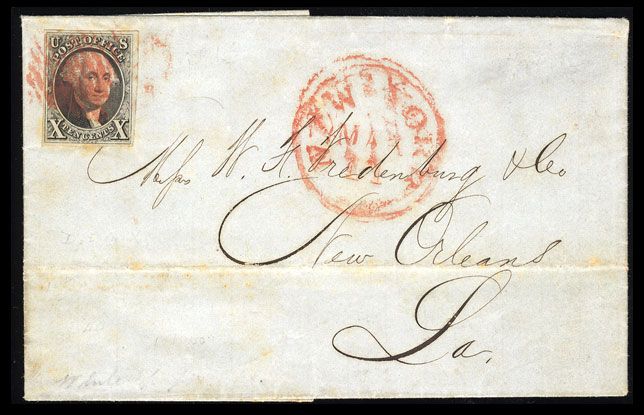 U S
POST OFFICE
X TEN CENTS X
NEW YORK
MAR
Messrs W. H. Fredenburg & Co
New Orleans
La.